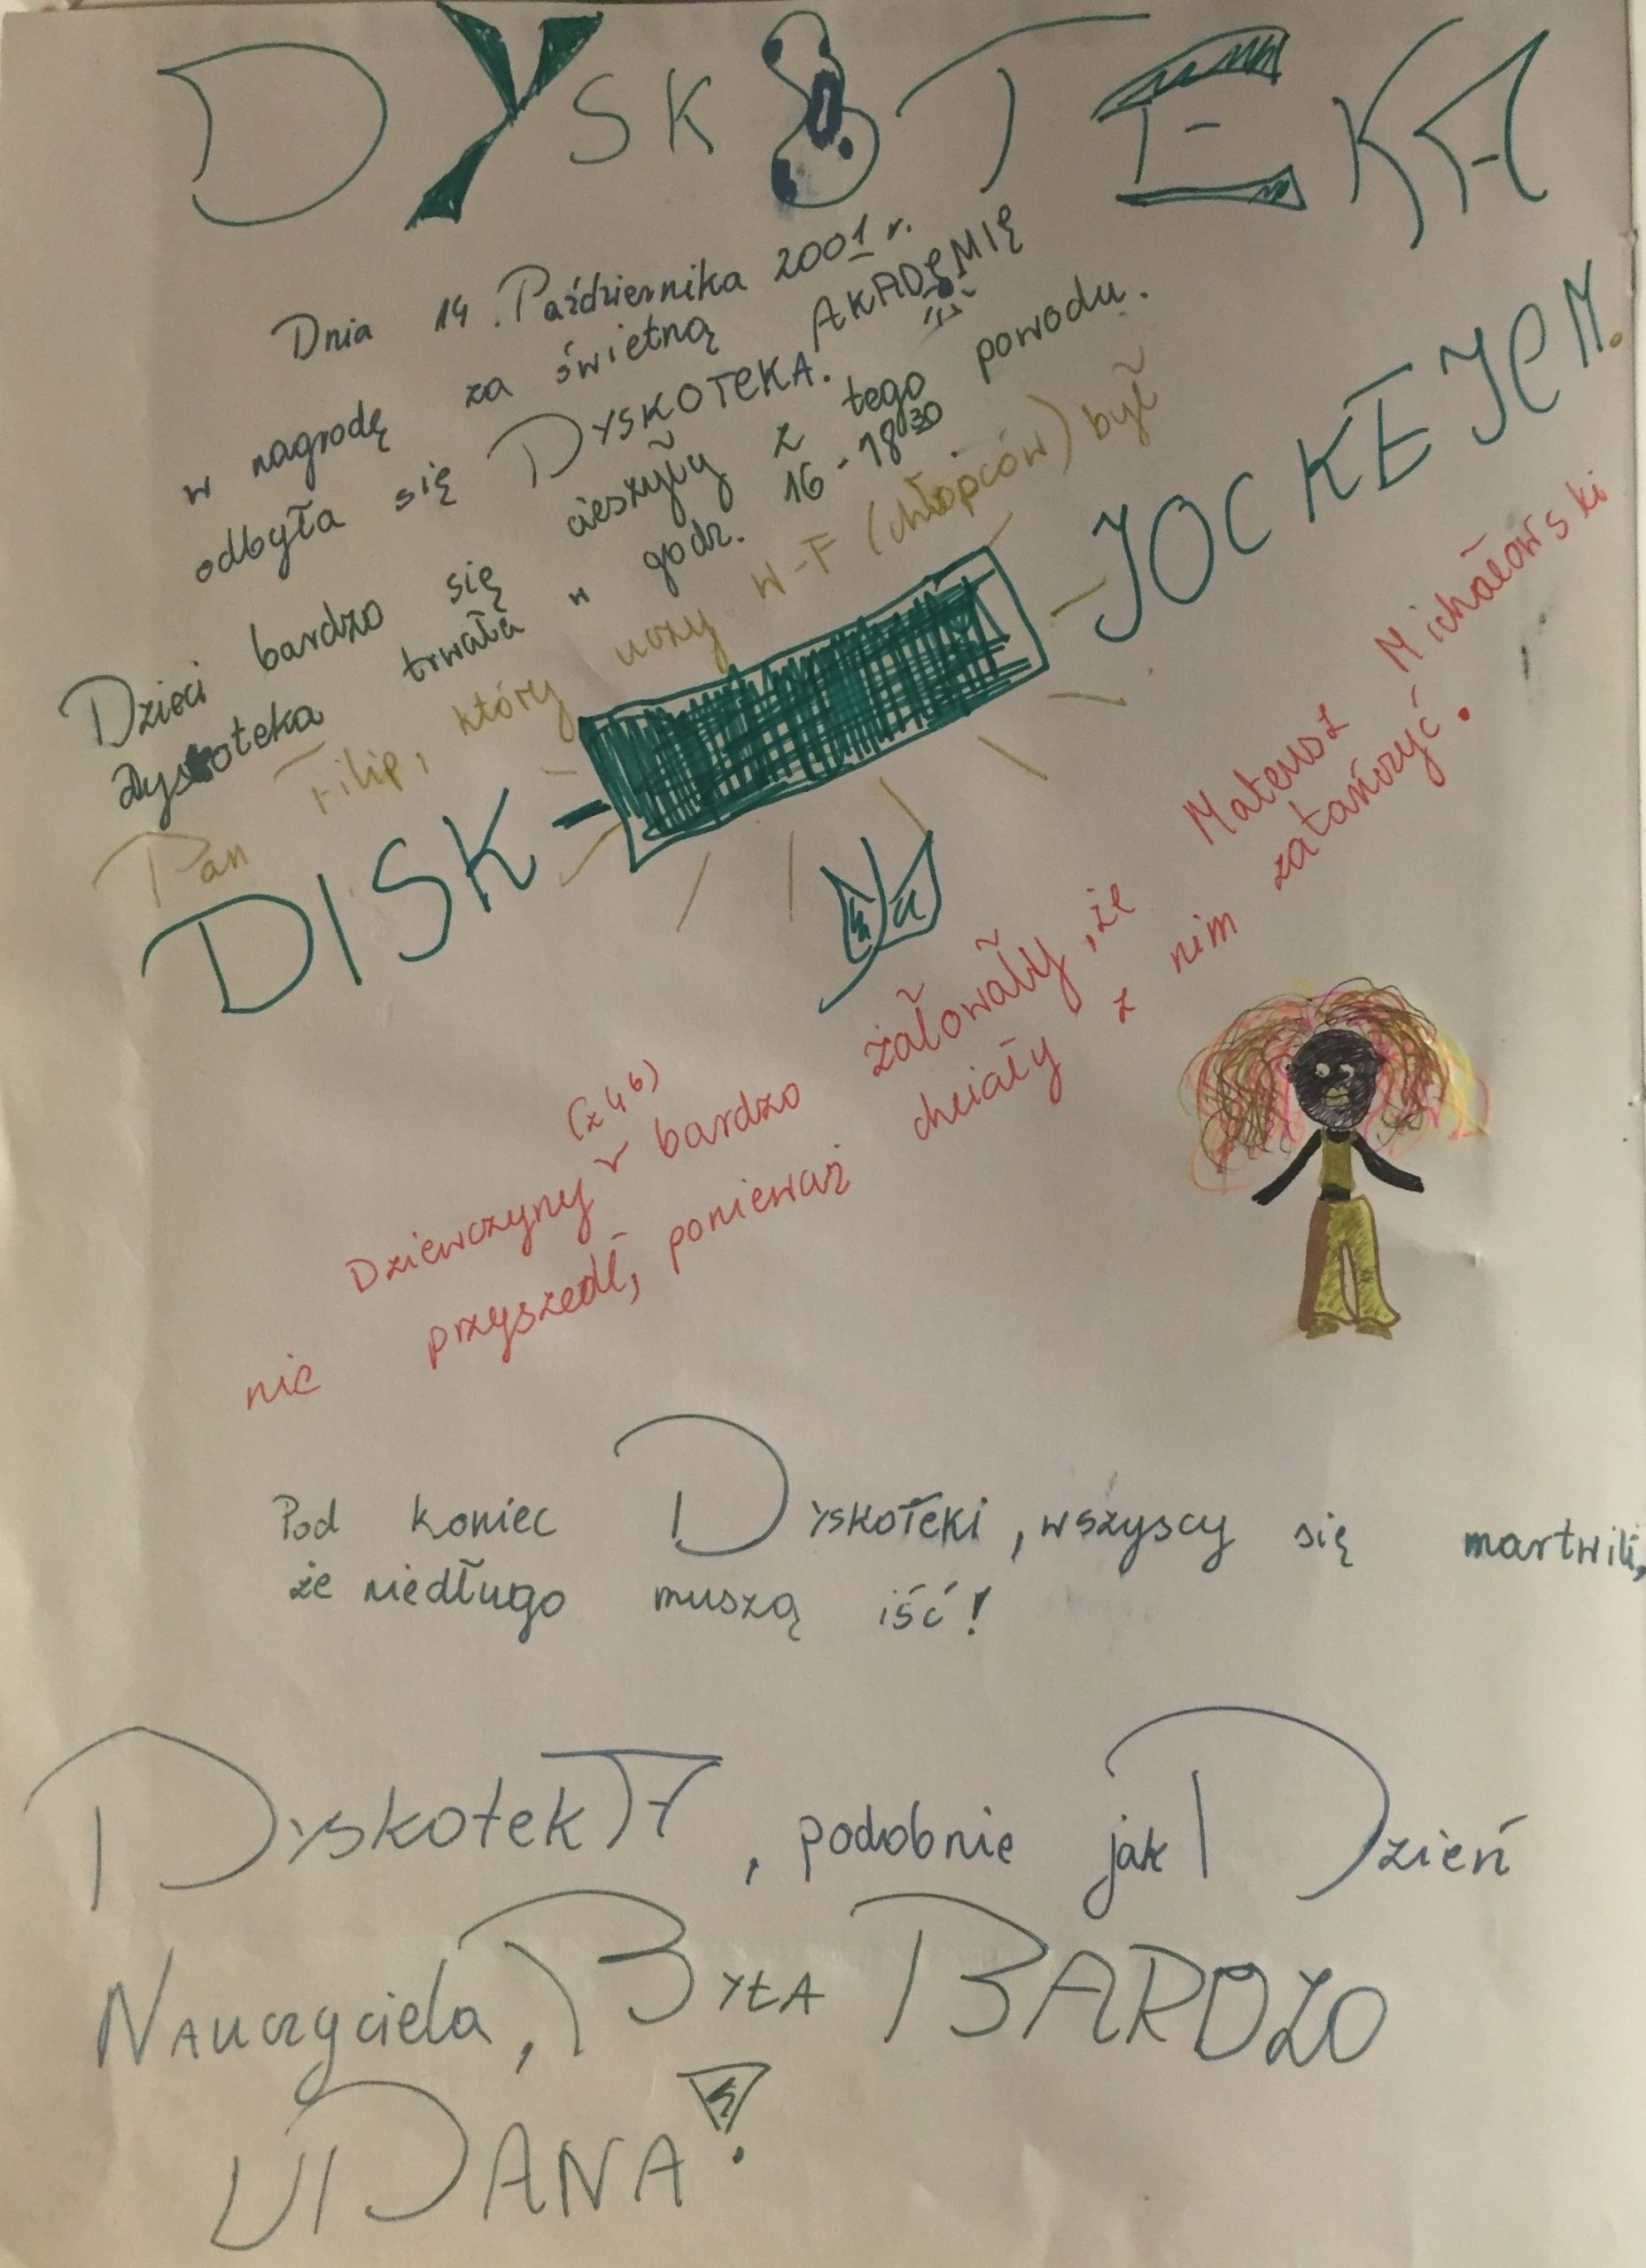 DYSKOTEKA
Dnia 14. Października 2001 r.
w nagrodę za świetną AKADĘMIĘ
odbyła się DYSKOTEKA.
Dzieci bardzo się cieszyły z tego powodu.
Dyskoteka trwała w godz. 16-18 30
Pan Filip, który uczy w-F (chłopców) był
DISK - JOCKEJEM.
Dziewczyny (z 4 b) bardzo żałowały, że Mateusz Michałowski
nie przyszedł, ponieważ chciały z nim zatańczyć.
Pod koniec DYSKOTEKi, wszyscy się martwili,
że niedługo muszą iść!
DyskotekA, podobnie jak Dzień
NAuczyciela, BYŁA BARDZO
UDANA!